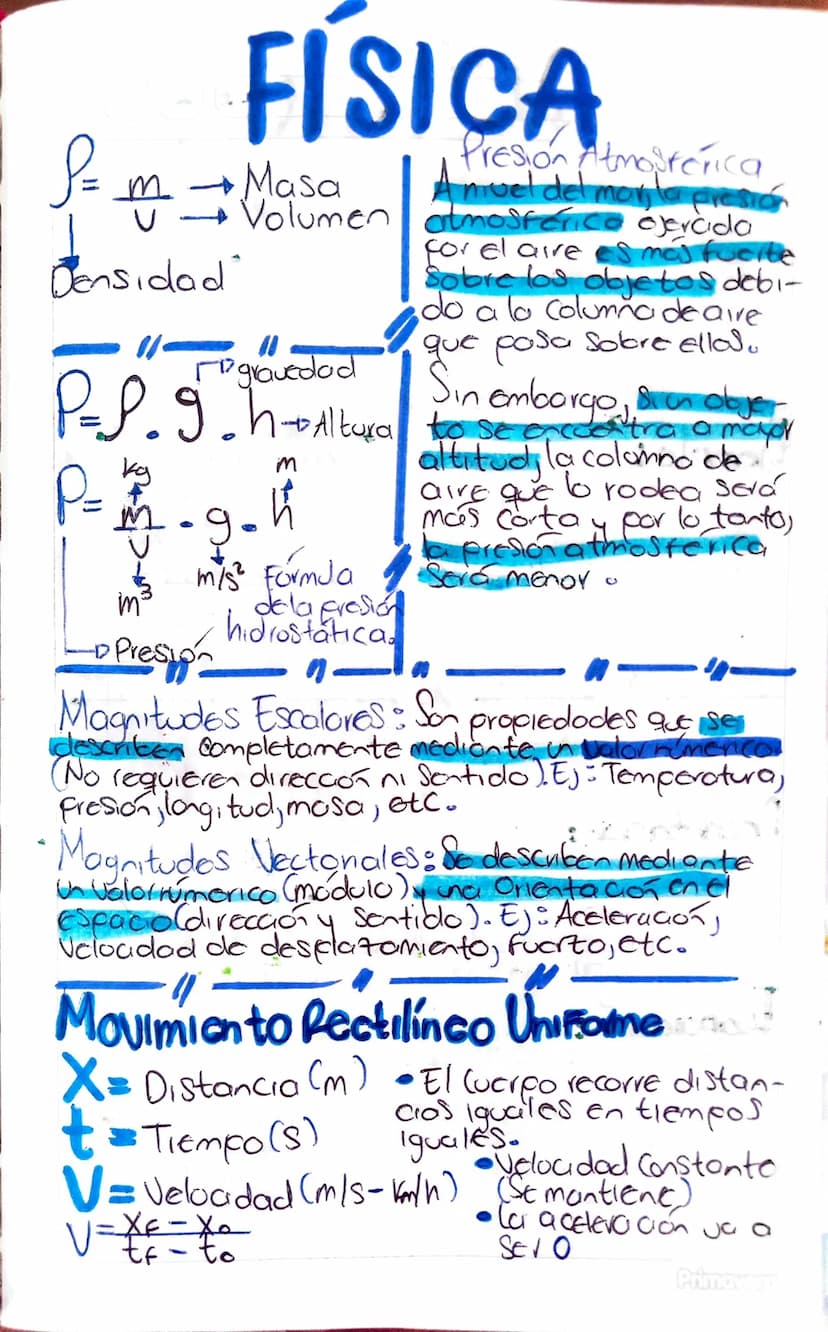 FÍSICA
ρ = m → Masa
V → Volumen
Densidad
gravedad
P = ρ . g . h → Altura
kg m
P = m . g . h
V
m³ m/s² Fórmula
de la presión
hidrostática.
Presión
Presión Atmosférica
A nivel del mar, la presión
atmosférica ejercida
por el aire es más fuerte
sobre los objetos debi-
do a la columna de aire
que pasa sobre ellas.
Sin embargo, si un obje-
to se encuentra a mayor
altitud, la columna de
aire que lo rodea será
más corta y por lo tanto,
la presión atmosférica
será menor.
Magnitudes Escalares: Son propiedades que se
describen completamente mediante un valor númerico
(No requieren dirección ni Sentido). Ej: Temperatura,
presión, longitud, masa, etc.
Magnitudes Vectoriales: Se describen mediante
un valor númerico (módulo) y una Orientación en el
espacio (dirección y Sentido). Ej: Aceleración,
Velocidad de desplazamiento, fuerza, etc.
Movimiento Rectilíneo Uniforme
X = Distancia (m)
t = Tiempo (s)
V = Velocidad (m/s - Km/h)
V = XF - X0
tF - t0
• El Cuerpo recorre distan-
cias iguales en tiempos
iguales.
• Velocidad Constante
(Se mantiene)
• La aceleración va a
ser 0